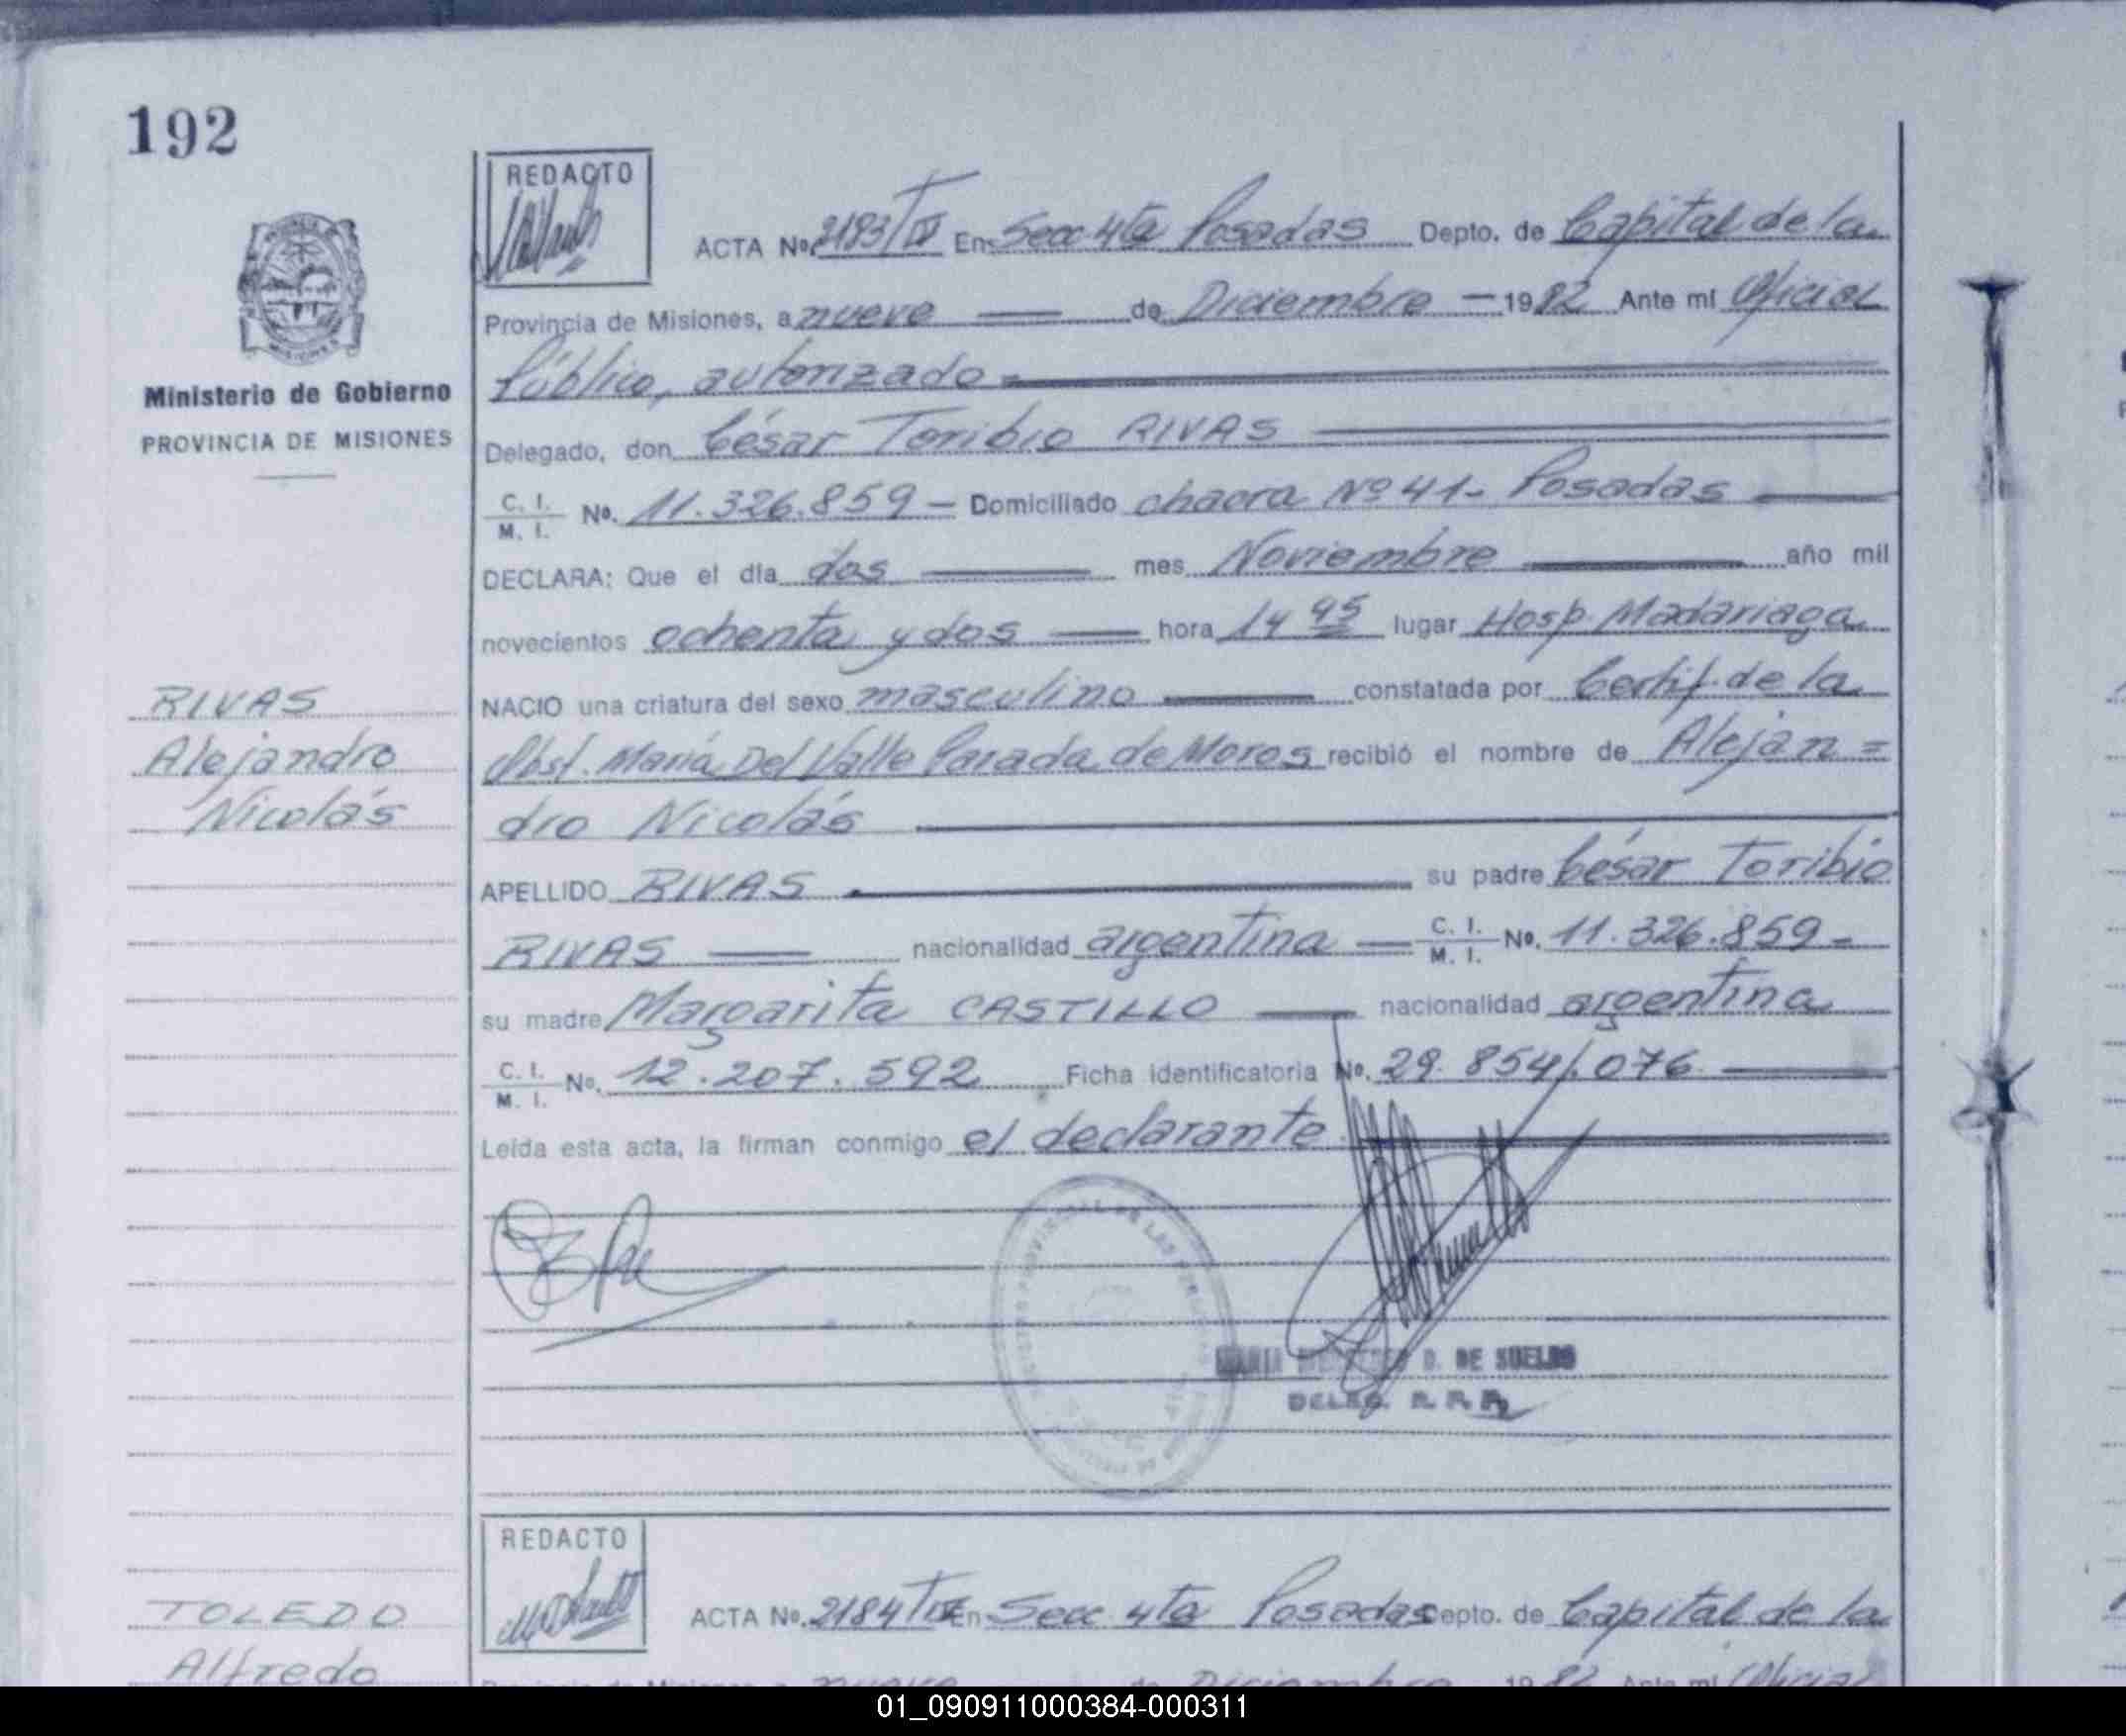 192
REDACTO
ACTA No. 2183/T IV En Secc 4ta Posadas Depto. de Capital de la
Provincia de Misiones, a nueve de Diciembre 1982 Ante mí Oficial
Público, autorizado
Ministerio de Gobierno
PROVINCIA DE MISIONES
Delegado, don César Toribio RIVAS
C. I. M. I. No. 11.326.859 Domiciliado chacra Nº 41- Posadas
DECLARA: Que el día dos mes Noviembre año mil
novecientos ochenta y dos hora 14 45 lugar Hosp. Madariaga
RIVAS
Alejandro
Nicolás
NACIO una criatura del sexo masculino constatada por Certif. de la
Obst. María Del Valle Parada de Moros recibió el nombre de Alejan=
dro Nicolás
APELLIDO RIVAS su padre César Toribio
RIVAS nacionalidad argentina C. I. M. I. No. 11.326.859-
su madre Margarita CASTILLO nacionalidad argentina
C. I. M. I. No. 12.207.592 Ficha identificatoria No. 29.854.076
Leída esta acta, la firman conmigo el declarante
D. DE SUELDO
DELEG.
REDACTO
ACTA No. 2184/T IV En Secc 4ta Posadas Depto. de Capital de la
TOLEDO
Alfredo
Provincia de Misiones, a nueve de Diciembre 1982 Ante mí Oficial
01_090911000384-000311